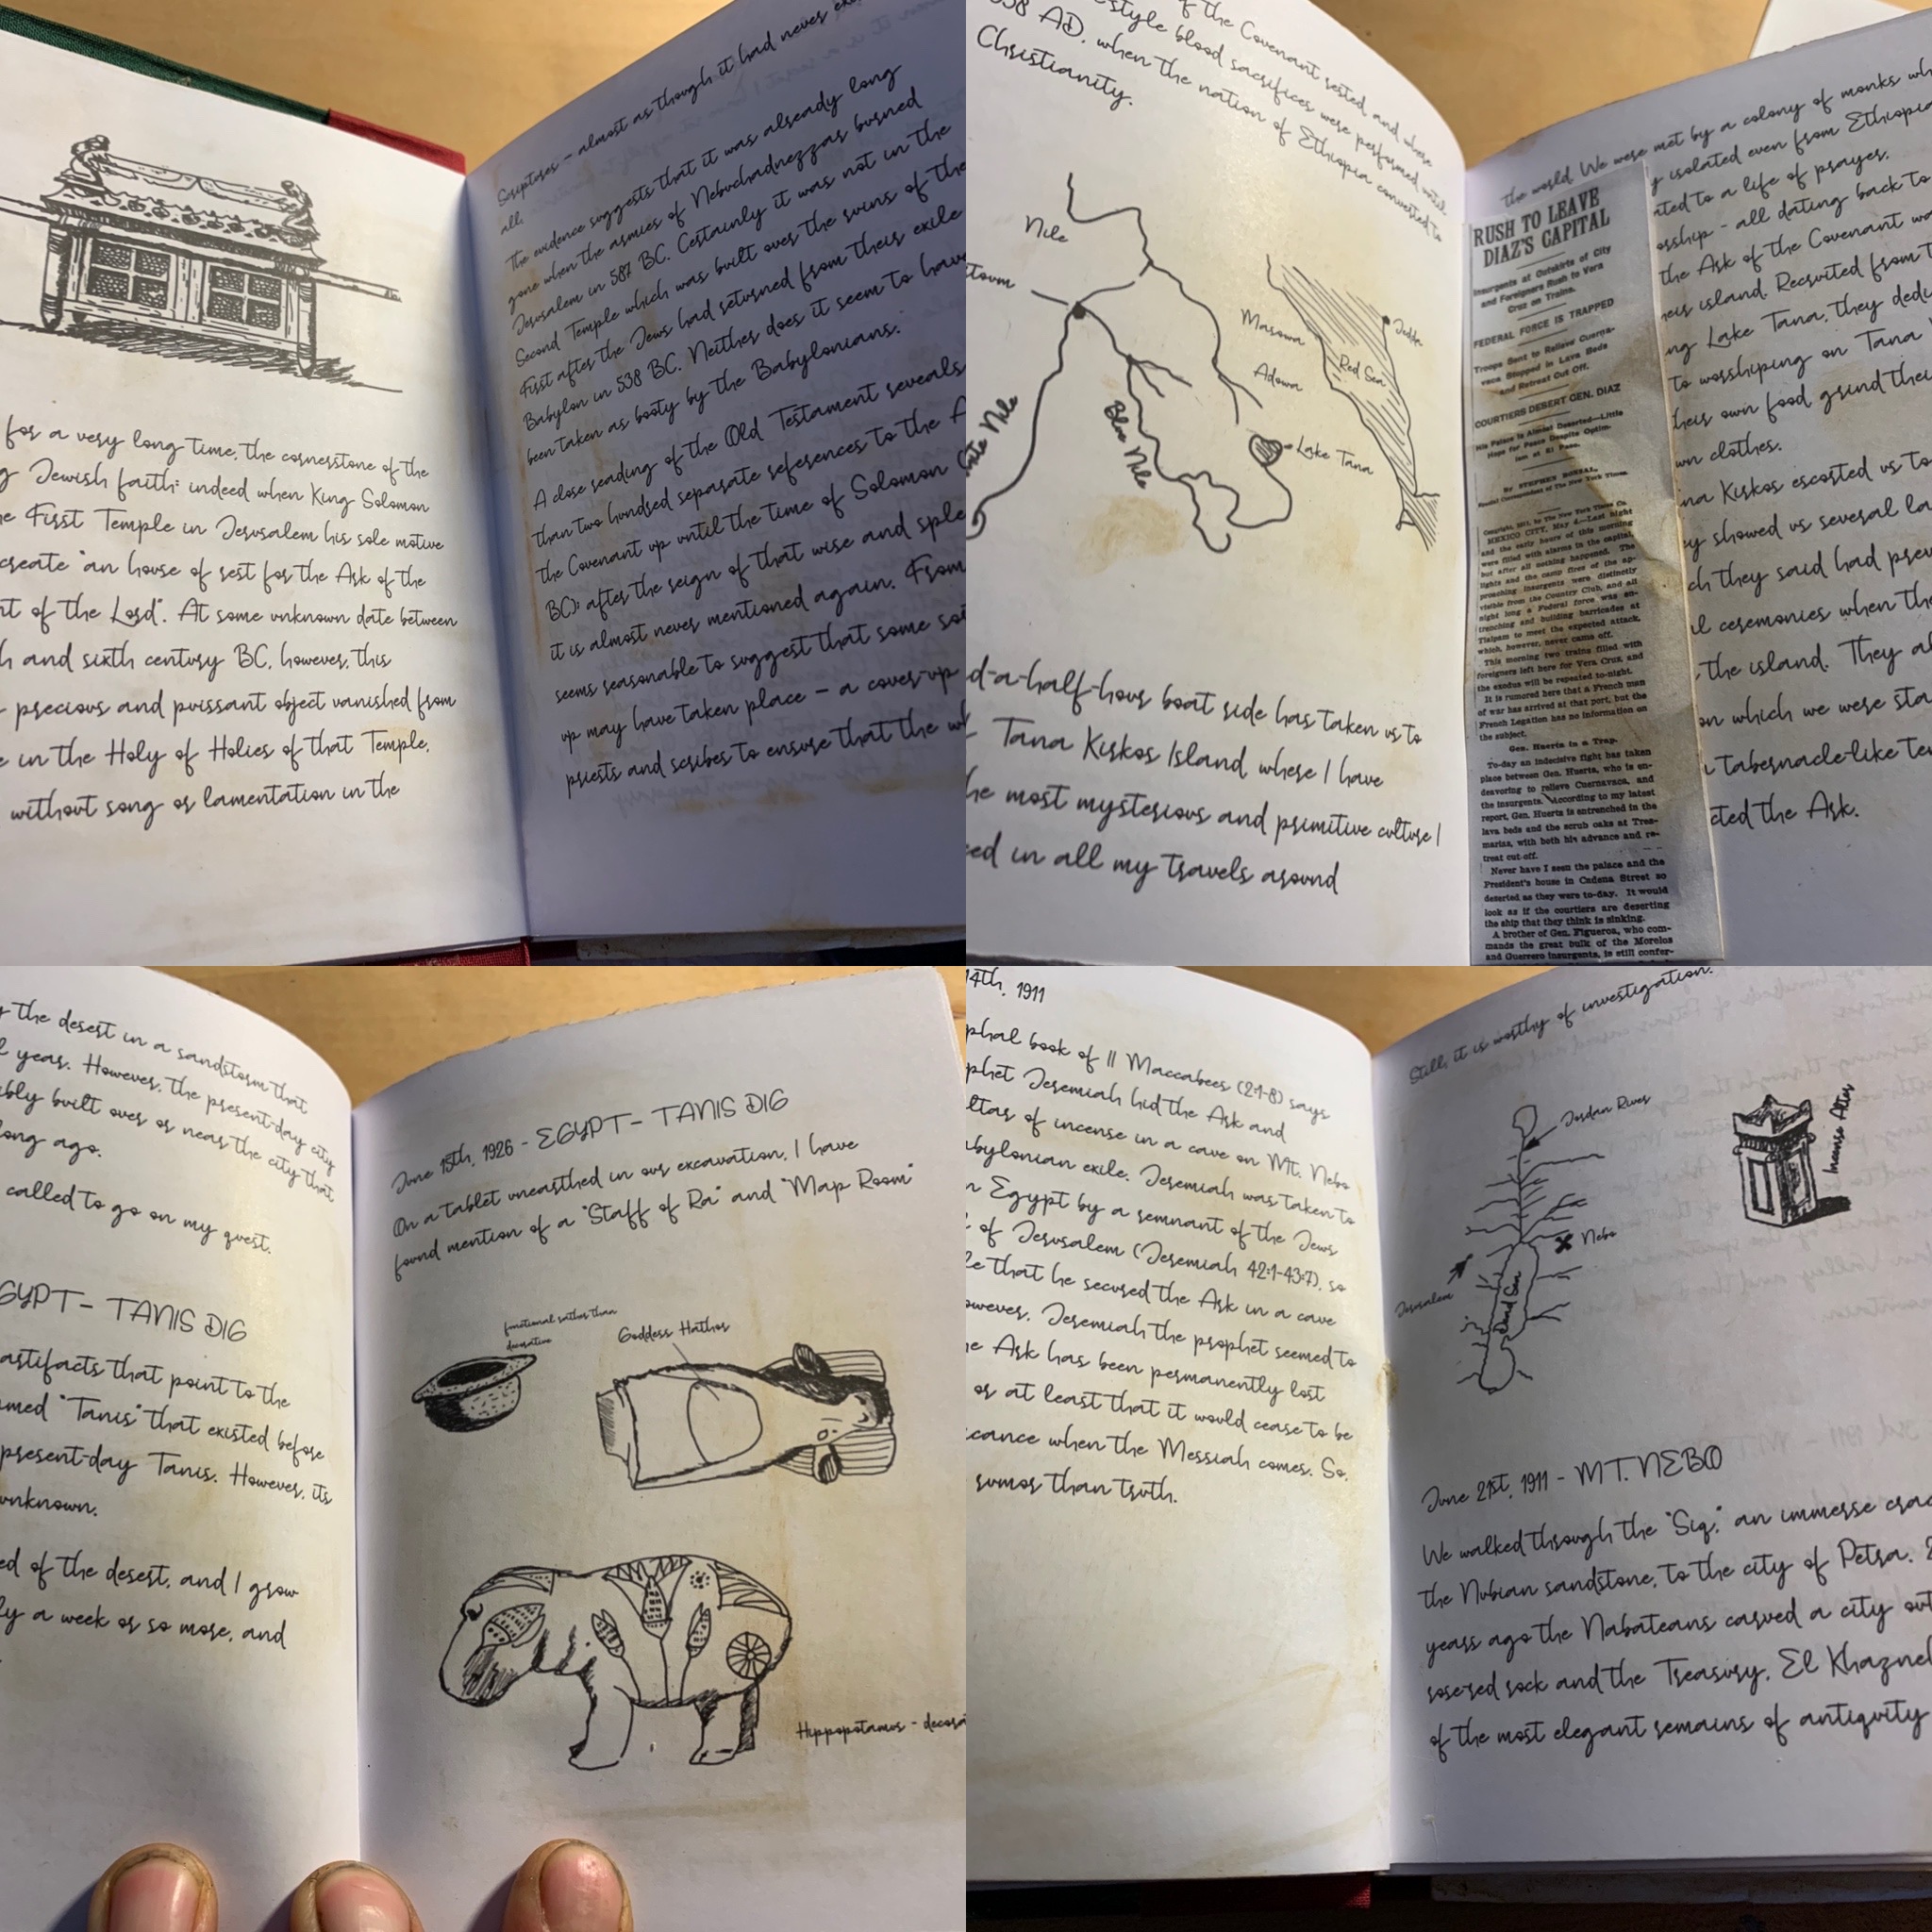 for a very long time, the cornerstone of the
Jewish faith: indeed when King Solomon
First Temple in Jerusalem his sole motive
create "an house of rest for the Ark of the
of the Lord". At some unknown date between
and sixth century BC, however, this
precious and puissant object vanished from
in the Holy of Holies of that Temple,
without song or lamentation in the
Scriptures – almost as though it had never
all.
The evidence suggests that it was already long
gone when the armies of Nebuchadnezzar burned
Jerusalem in 587 BC. Certainly it was not in the
Second Temple which was built over the ruins of the
First after the Jews had returned from their exile
Babylon in 538 BC. Neither does it seem to have
been taken as booty by the Babylonians."
A close reading of the Old Testament reveals
than two hundred separate references to the
the Covenant up until the time of Solomon
BC); after the reign of that wise and
it is almost never mentioned again. From
seems reasonable to suggest that some
up may have taken place – a cover-up
priests and scribes to ensure that the
of the Covenant rested, and where
style blood sacrifices were performed until
AD, when the nation of Ethiopia converted to
Christianity.
Nile
Masowa
Jedda
Red Sea
Adowa
Nile
Blue Nile
Lake Tana
d-a-half-hour boat ride has taken us to
Tana Kirkos Island, where I have
most mysterious and primitive culture I
in all my travels around
the world. We were met by a colony of monks
isolated even from Ethiopia
to a life of prayer.
- all dating back to
the Ark of the Covenant
island. Recruited from
Lake Tana, they
to worshiping on Tana
their own food grind their
own clothes.
Kirkos escorted us to
showed us several
they said had
ceremonies when the
the island. They
on which we were
tabernacle-like
the Ark.
RUSH TO LEAVE
DIAZ'S CAPITAL
Insurgents at Outskirts of City
and Foreigners Rush to Vera
Cruz on Trains.
FEDERAL FORCE IS TRAPPED
Troops Sent to Relieve Cuerna-
vaca Stopped in Lava Beds
and Retreat Cut Off.
COURTIERS DESERT GEN. DIAZ
His Palace Is Almost Deserted—Little
Hope for Peace Despite Optim-
ism at El Paso.
By STEPHEN BONSAL,
Special Correspondent of The New York Times.
Copyright, 1911, by The New York Times Co.
MEXICO CITY, May 4.—Last night
and the early hours of this morning
were filled with alarms in the capital,
but after all nothing happened. The
lights and the camp fires of the ap-
proaching insurgents were distinctly
visible from the Country Club, and all
night long a Federal force was en-
trenching and building barricades at
Tlalpam to meet the expected attack,
which, however, never came off.
This morning two trains filled with
foreigners left here for Vera Cruz, and
the exodus will be repeated to-night.
It is rumored here that a French man
of war has arrived at that port, but the
French Legation has no information on
the subject.
Gen. Huerta in a Trap.
To-day an indecisive fight has taken
place between Gen. Huerta, who is en-
deavoring to relieve Cuernavaca, and
the insurgents. According to my latest
report, Gen. Huerta is entrenched in the
lava beds and the scrub oaks at Tres-
marias, with both his advance and re-
treat cut off.
Never have I seen the palace and the
President's house in Cadena Street so
deserted as they were to-day. It would
look as if the courtiers are deserting
the ship that they think is sinking.
A brother of Gen. Figueroa, who com-
mands the great bulk of the Morelos
and Guerrero insurgents, is still confer-
the desert in a sandstorm that
year. However, the present-day city
built over or near the city that
long ago.
called to go on my quest.
TANIS DIG
artifacts that point to the
"Tanis" that existed before
present-day Tanis. However, its
unknown.
of the desert, and I grow
a week or so more, and
June 15th, 1926 - EGYPT - TANIS DIG
On a tablet unearthed in our excavation, I have
found mention of a "Staff of Ra" and "Map Room"
functional rather than
decorative
Goddess Hathor
Hippopotamus -
14th, 1911
book of II Maccabees (2:1-8) says
Jeremiah hid the Ark and
of incense in a cave on Mt. Nebo
exile. Jeremiah was taken to
Egypt by a remnant of the Jews
of Jerusalem (Jeremiah 42:1-43:7), so
that he secured the Ark in a cave
Jeremiah the prophet seemed to
Ark has been permanently lost
or at least that it would cease to be
when the Messiah comes. So,
rumor than truth.
Still, it is worthy of investigation.
Jordan River
Incense Alter
Nebo
Jerusalem
Dead Sea
June 21st, 1911 - MT. NEBO
We walked through the "Siq," an immerse
the Nubian sandstone, to the city of Petra.
years ago the Nabateans carved a city
rose-red rock and the Treasury, El
of the most elegant remains of antiquity